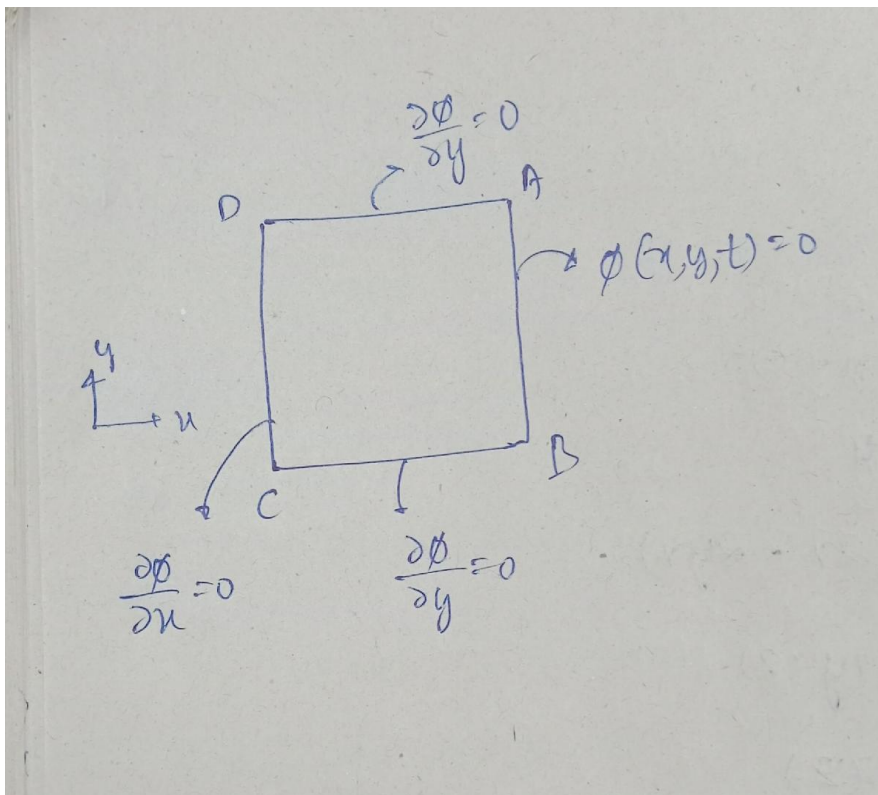 ∂φ/∂y = 0
D
A
φ(x,y,t) = 0
y
x
B
C
∂φ/∂x = 0
∂φ/∂y = 0